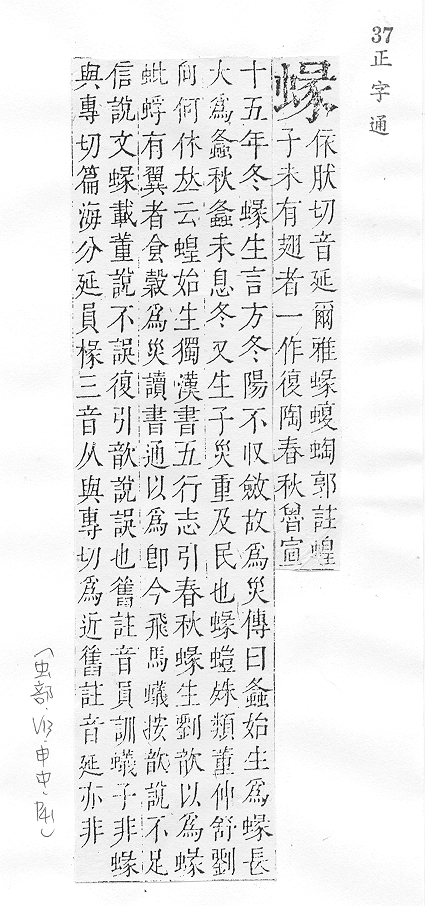 37正字通
蝝
依朕切音延爾雅蝝蝮蜪郭註蝗
子未有翅者一作復陶春秋魯宣
十五年冬蝝生言方冬陽不収斂故為災傳曰螽始生爲蝝長
大爲螽秋螽未息冬又生子災重及民也蝝螘殊類董仲舒劉
向何休𠀤云蝗始生獨漢書五行志引春秋蝝生劉歆以爲蝝
蚍蜉有翼者食穀爲災讀書通以爲卽今飛馬蟻按歆說不足
信說文蝝載董說不誤復引歆說誤也舊註音員訓蟻子非蝝
與專切篇海分延員椽三音从與專切爲近舊註音延亦非
(虫部